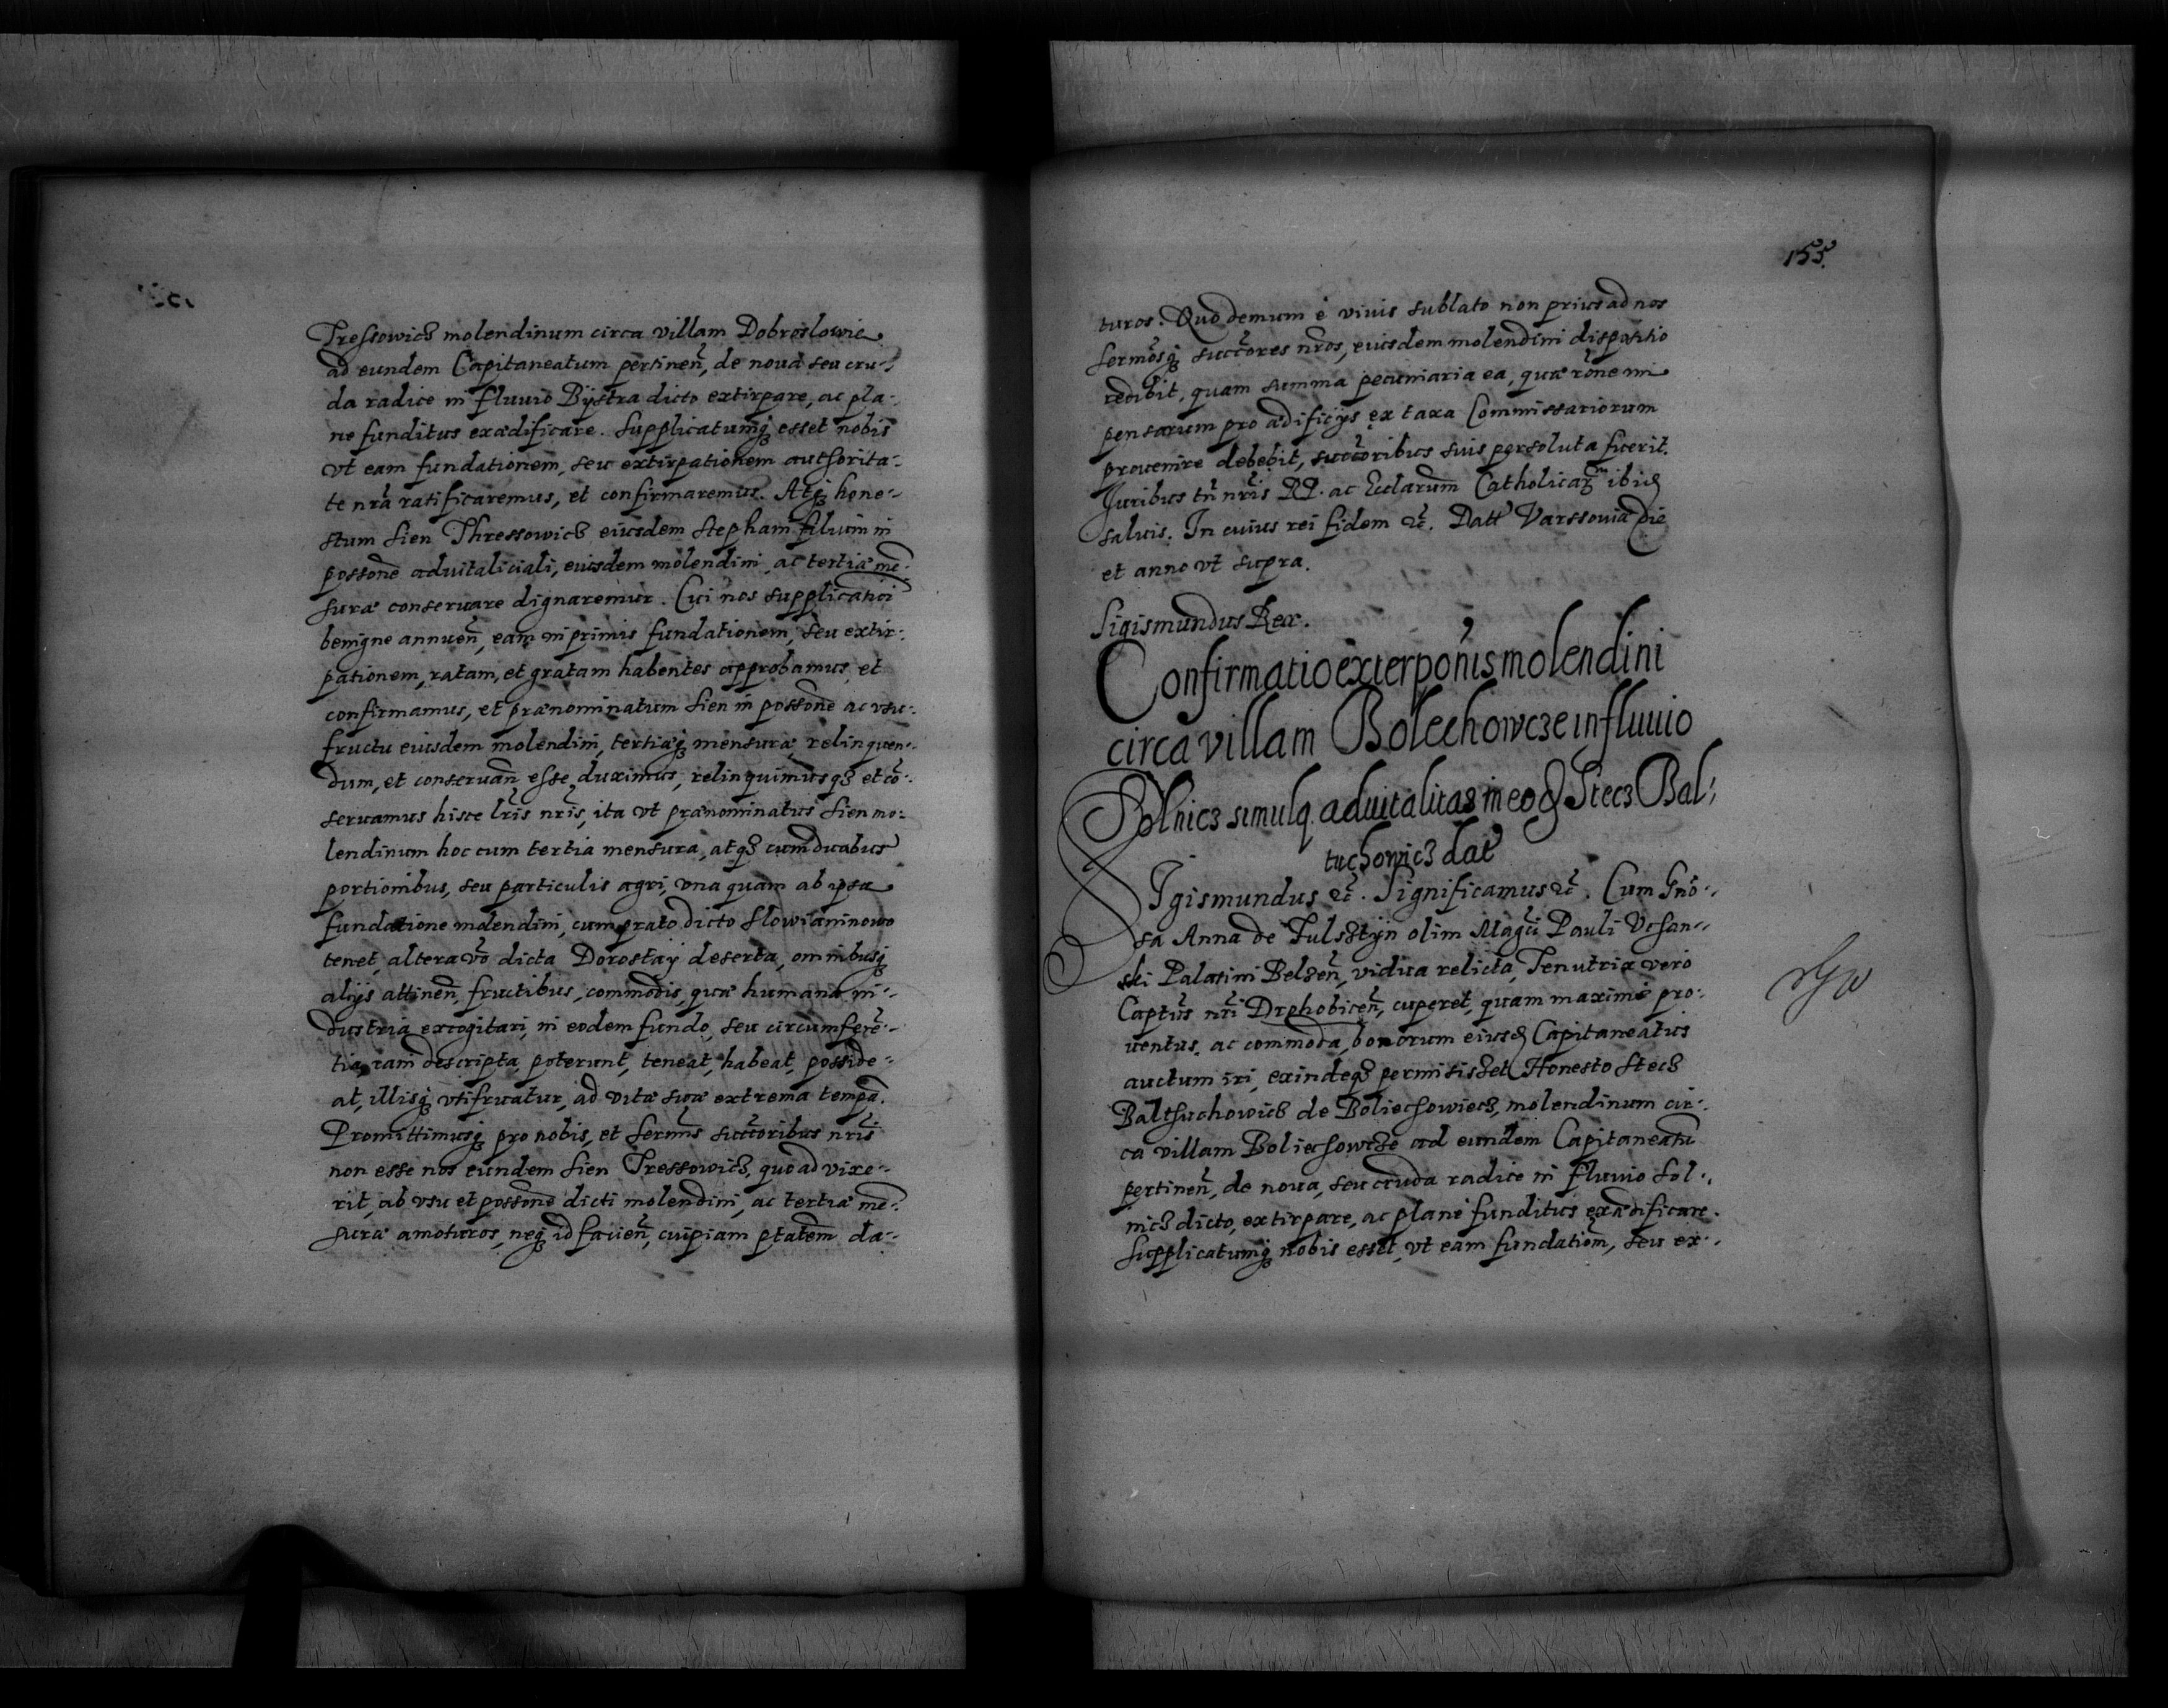 Tressowicz molendinum circa villam Dobroslowice
ad eundem Capitaneatum pertinen̄, de noua seu cru-
da radice in fluuio Bÿstra dicto extirpare, ac pla-
ne funditus exædificare. Supplicatumq́ esset nobis
vt eam fundationem, seu extirpationem authorita-
te nrā ratificaremus, et confirmaremus. Atq́ hone-
stum Sien Thressowicz eiusdem Stephani filium in
possone aduitaliciali, eiusdem molendini, ac tertiæ mē-
suræ conseruare dignaremur. Cui nos supplicatioī
benigne annuen̄, eam in primis fundationem, seu extir-
pationem, ratam, et gratam habentes approbamus, et
confirmamus, et prænominatum Sien in possone ac vsu-
fructu eiusdem molendini, tertiæq́ mensuræ relinquen-
dum, et conseruan̄ esse duximus, relinquimusq́ et cō-
seruamus hisce lrīs nrīs, ita vt prænominatus Sien mo-
lendinum hoc cum tertia mensura, atq́ cum duabus
portionibus, seu particulis agri, vna quam ab ipsa
fundatione molendini, cum prato dicto Slowianinowo
tenet, altera vō dicta Dorostaÿ deserta, omnibusq́
alijs attinen̄, fructibus, commodis, quæ humana in-
dustria excogitari, in eodem fundo, seu circumferē-
tia, iam descripta poterunt, teneat, habeat, posside-
at, illisq́ vtifruatur, ad vitæ suæ extrema tempā.
Promittimusq́ pro nobis, et Sermīs succ̄oribus nrīs
non esse nos eundem Sien Tressowicz, quo ad vixe-
rit, ab vsu et possone dicti molendini, ac tertiæ mē-
suræ amoturos, neq́ id facien̄, cuipiam ptatem da-
155.
turos. Quo demum è viuis sublato non prius ad nos
Sermosq́ succ̄ores nros, eiusdem molendini dispositio
redibit, quam summa pecuniaria ea, quæ rone im
pensarum pro ædificijs ex taxa Commissariorum
prouenire debebit, succ̄oribus suis persoluta fuerit.
Juribus tn̄ nrīs RP. ac Ecclarum Catholicarm̄ ibid
saluis. In cuius rei fidem etc̄. Datt Varssouiæ die
et anno vt supra.
Sigismundus Rex.
Confirmatio exterponīs molendini
circa villam Bolechowcze in fluuio
Solnicz simulq́ aduitalitas in eod Stecz Bal-
tuchowicz dat
SIgismundus etc̄. Significamus etc̄. Cum Gnō-
sa Anna de Fulsztÿn olim Magcī Pauli Vchan-
ski Palatini Belzen̄, vidua relicta, Tenutrix vero
Captus nrī Drohobicen̄, cuperet, quam maxime pro-
uentus, ac commoda, bonorum eiusd Capitaneatus
auctum iri, exindeq́ permisisset Honesto Stecz
Balthuchowicz de Boliechowiecz, molendinum cir-
ca villam Boliechowcze ad eundem Capitaneatū
pertinen̄, de noua, seu cruda radice in fluuio Sol-
nicz dicto, extirpare, ac plane funditus exædificare.
Supplicatumq́ nobis esset, vt eam fundationem, seu ex-